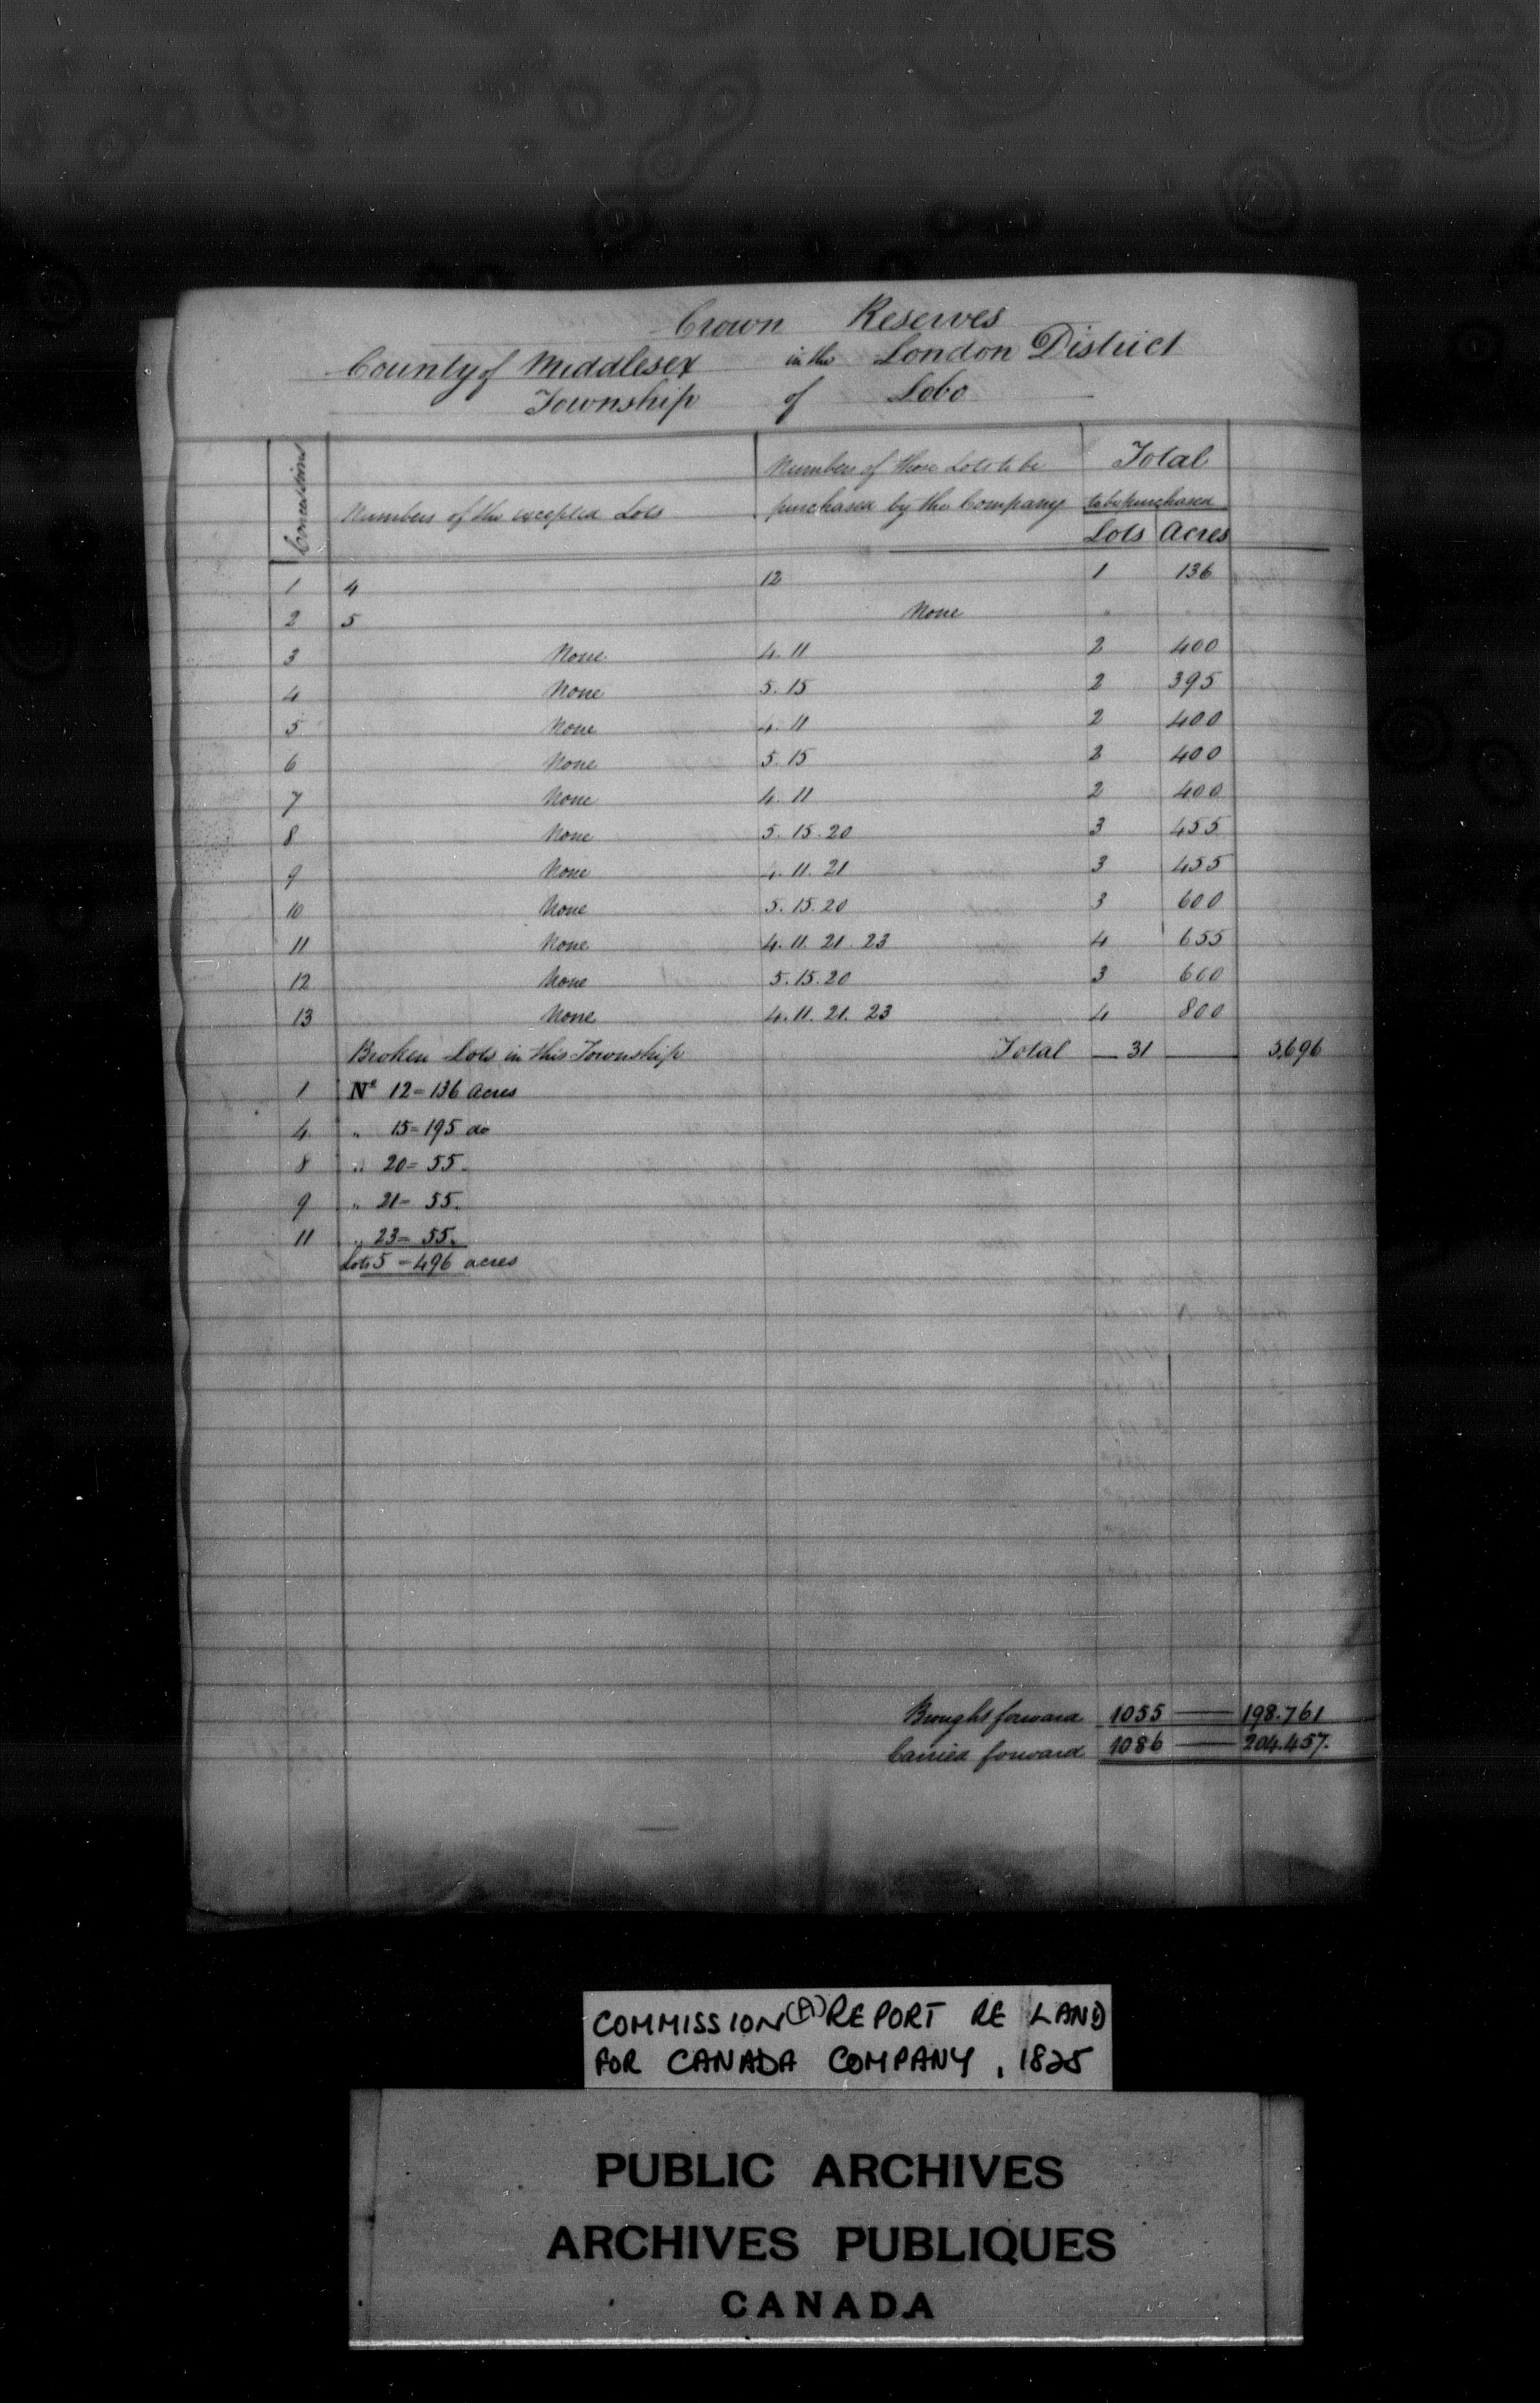 Crown Reserves
County of Middlesex in the London District
Township of Lobo
Concessions
Numbers of the excepted Lots
Numbers of those Lots to be
purchased by the Company
Total
to be purchased
Lots Acres
1 4 12 1 136
2 5 None " "
3 None 4. 11 2 400
4 None 5. 15 2 395
5 None 4. 11 2 400
6 None 5. 15 2 400
7 None 4. 11 2 400
8 None 5. 15. 20 3 455
9 None 4. 11. 21 3 455
10 None 5. 15. 20 3 600
11 None 4. 11. 21. 23 4 655
12 None 5. 15. 20 3 600
13 None 4. 11. 21. 23 4 800
Broken Lots in this Township Total — 31 — 5,696
1 No 12 = 136 acres
4 " 15 = 195 do
8 " 20 = 55.
9 " 21 = 55.
11 " 23 = 55.
Lots 5 = 496 acres
Brought forward 1055 — 198.761
Carried forward 1086 — 204.457.
COMMISSION (A) REPORT RE LAND
FOR CANADA COMPANY, 1825
PUBLIC ARCHIVES
ARCHIVES PUBLIQUES
CANADA